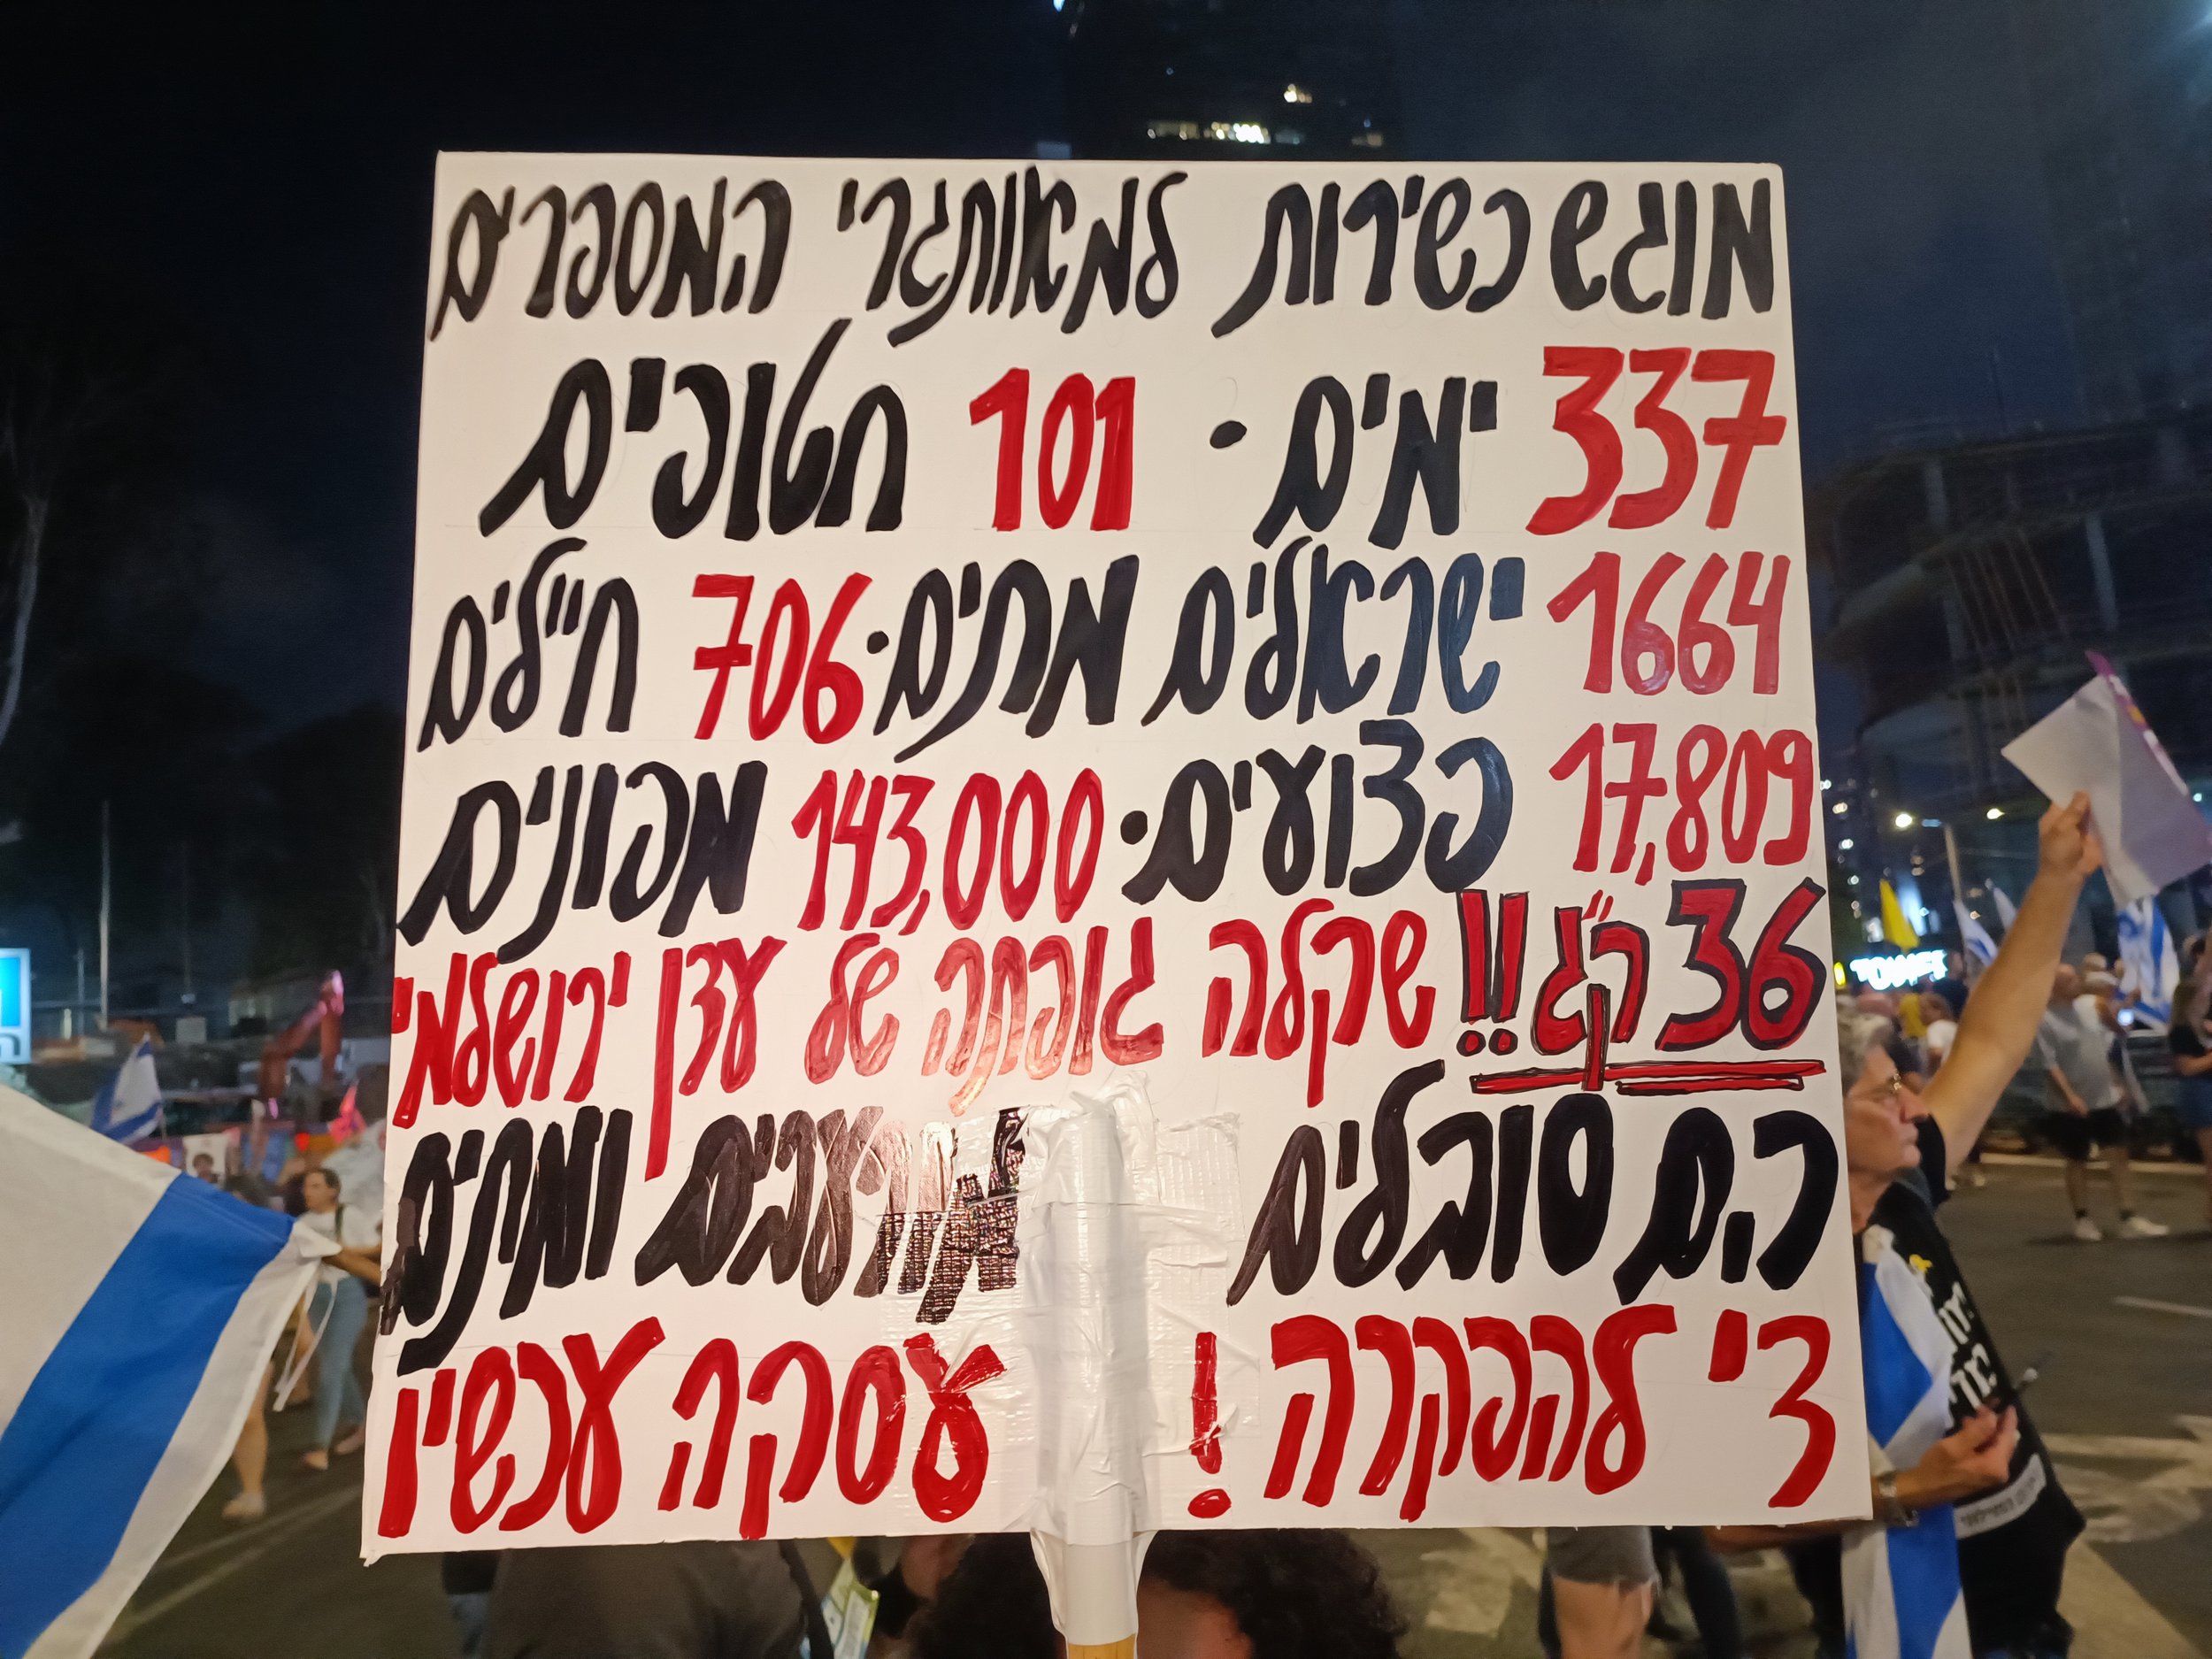 מוגש כשירות למאותגרי המספרים
337 ימים · 101 חטופים
1664 ישראלים מתים · 706 חיילים
17,809 פצועים · 143,000 מפונים
36 ק"ג!!! שקלה גופתה של עדן ירושלמי
הם סובלים מורעבים ומתים
די להפקרה! עסקה עכשיו
TOWER